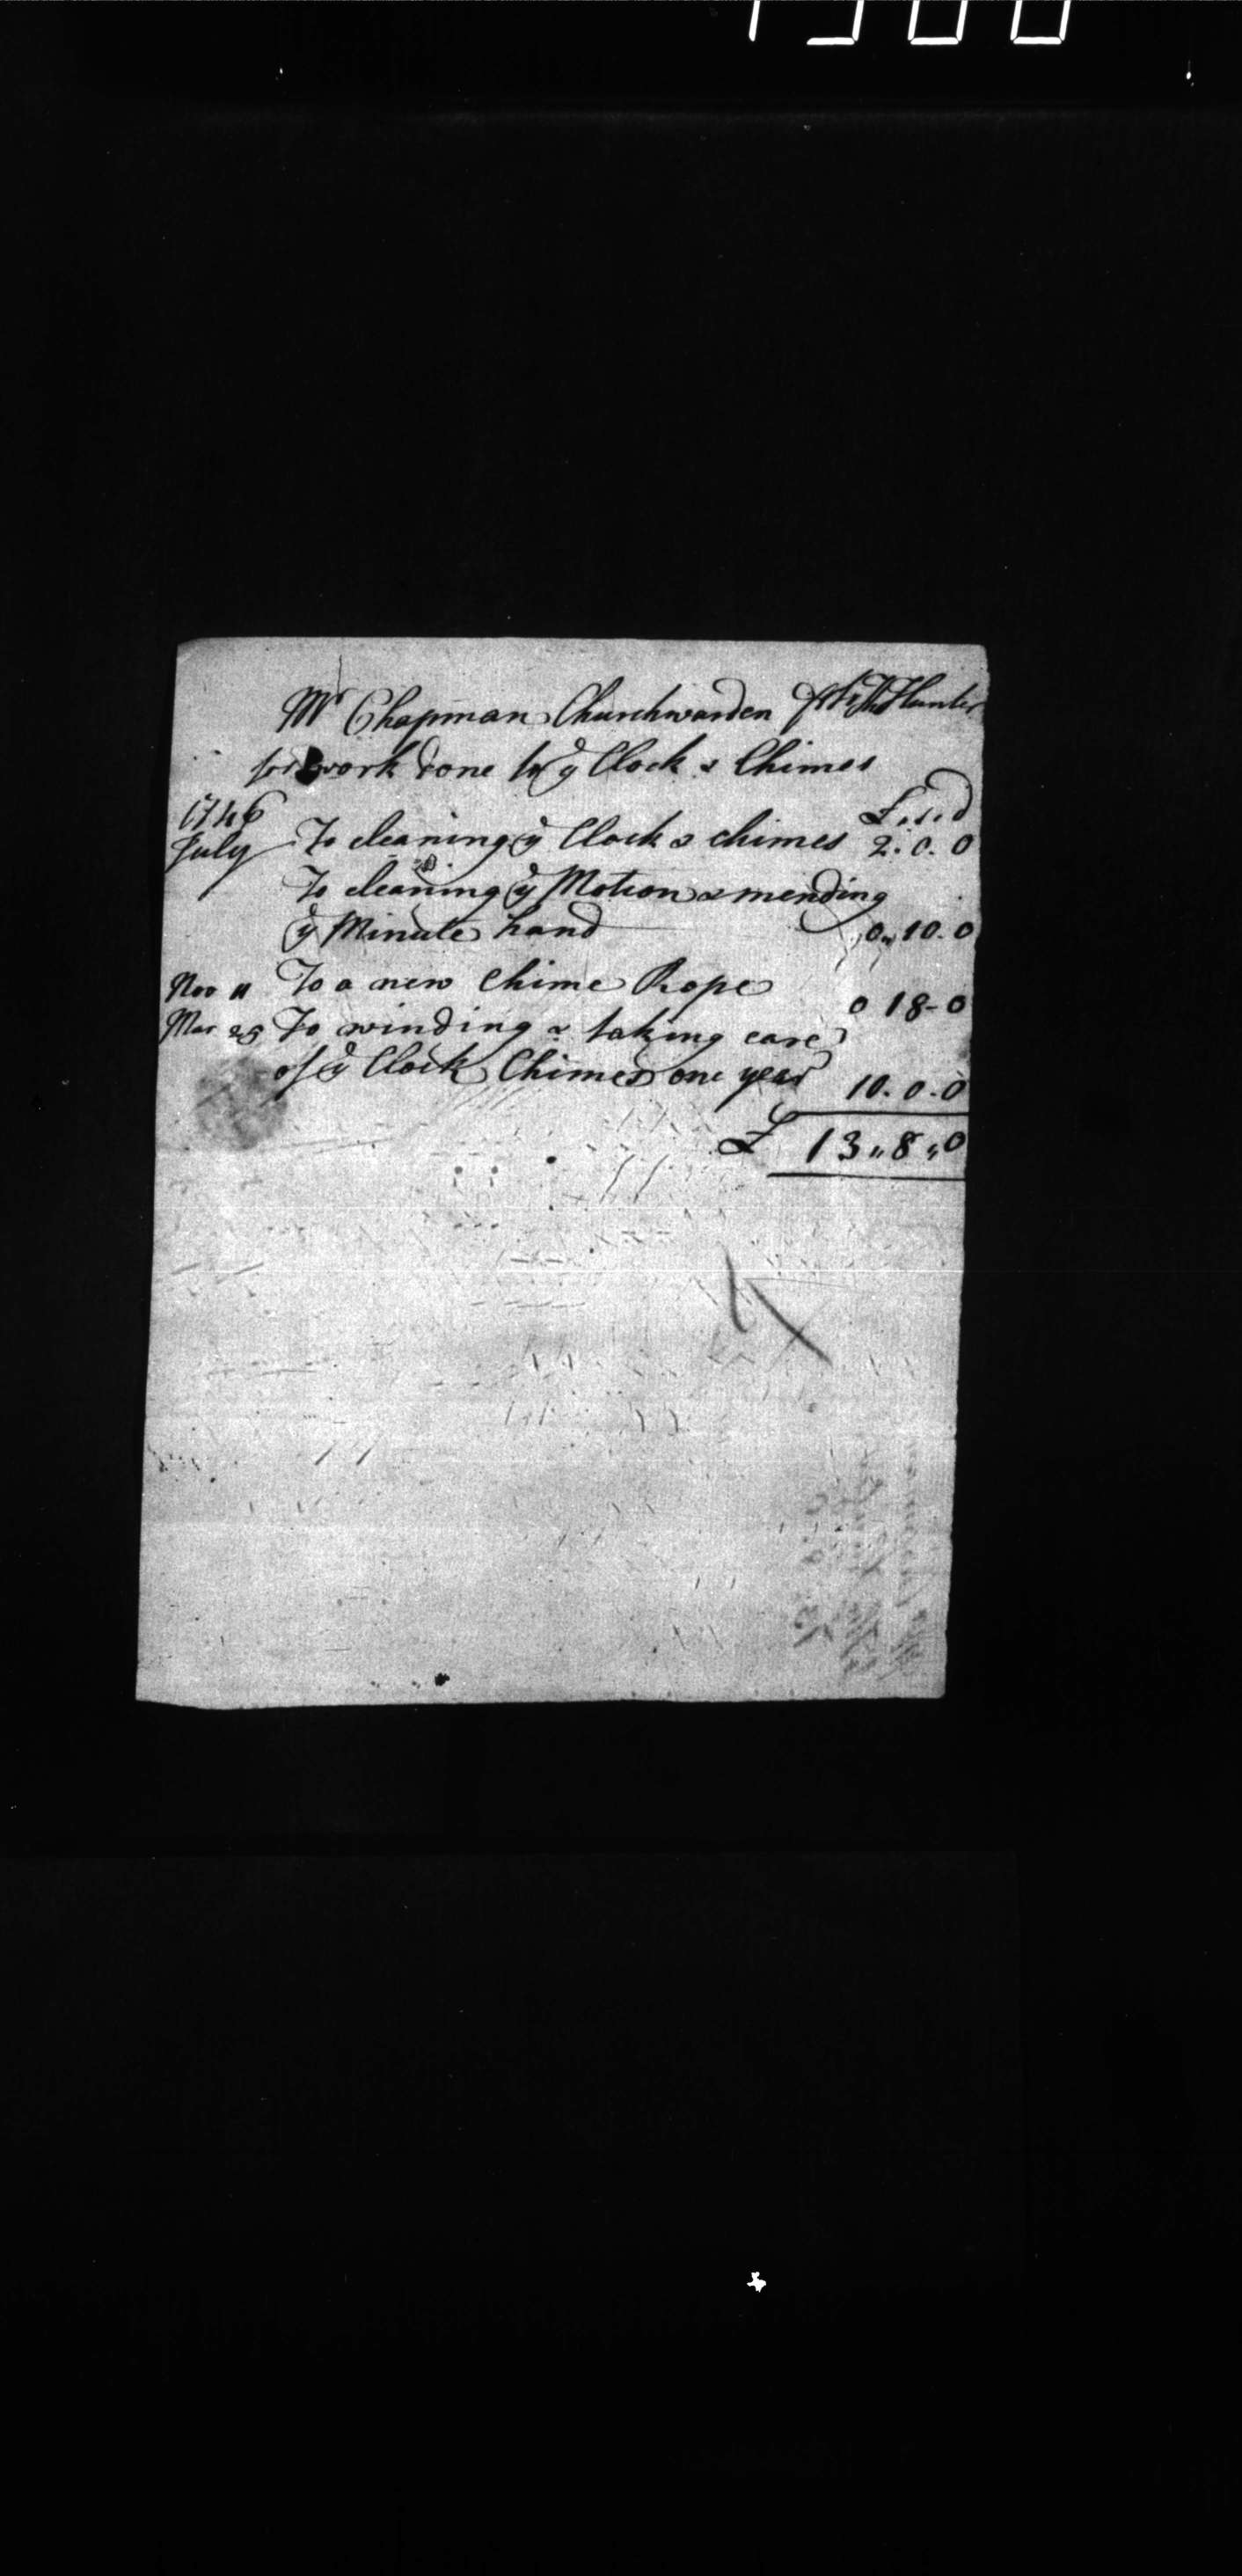 Mr Chapman Churchwarden Hunter
for work done to ye Clock & Chimes
1746 £ . s . d
July To cleaning ye Clock & chimes 2 . 0 . 0
To cleaning ye Motion & mending
ye Minute hand 0 " 10 . 0
Nov 11 To a new Chime Rope 0 18 - 0
Mar 25 To winding & taking care
of ye Clock Chimes one year 10 . 0 . 0
£ 13 " 8 " 0